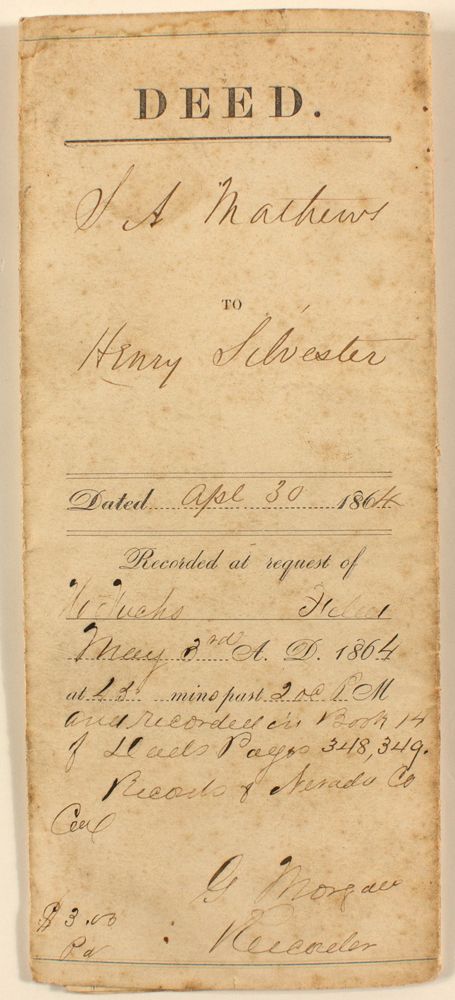 DEED.
S A Mathews
TO
Henry Silvester
Dated Apl 30 1864
Recorded at request of
Fuchs Filed
May 3rd A. D. 1864
at 45 mins past 2 oc P M
and recorded in Book 14
of Deeds Pages 348, 349.
Records of Nevada Co
Cal
G Morgan
$3.00
Pd
Recorder